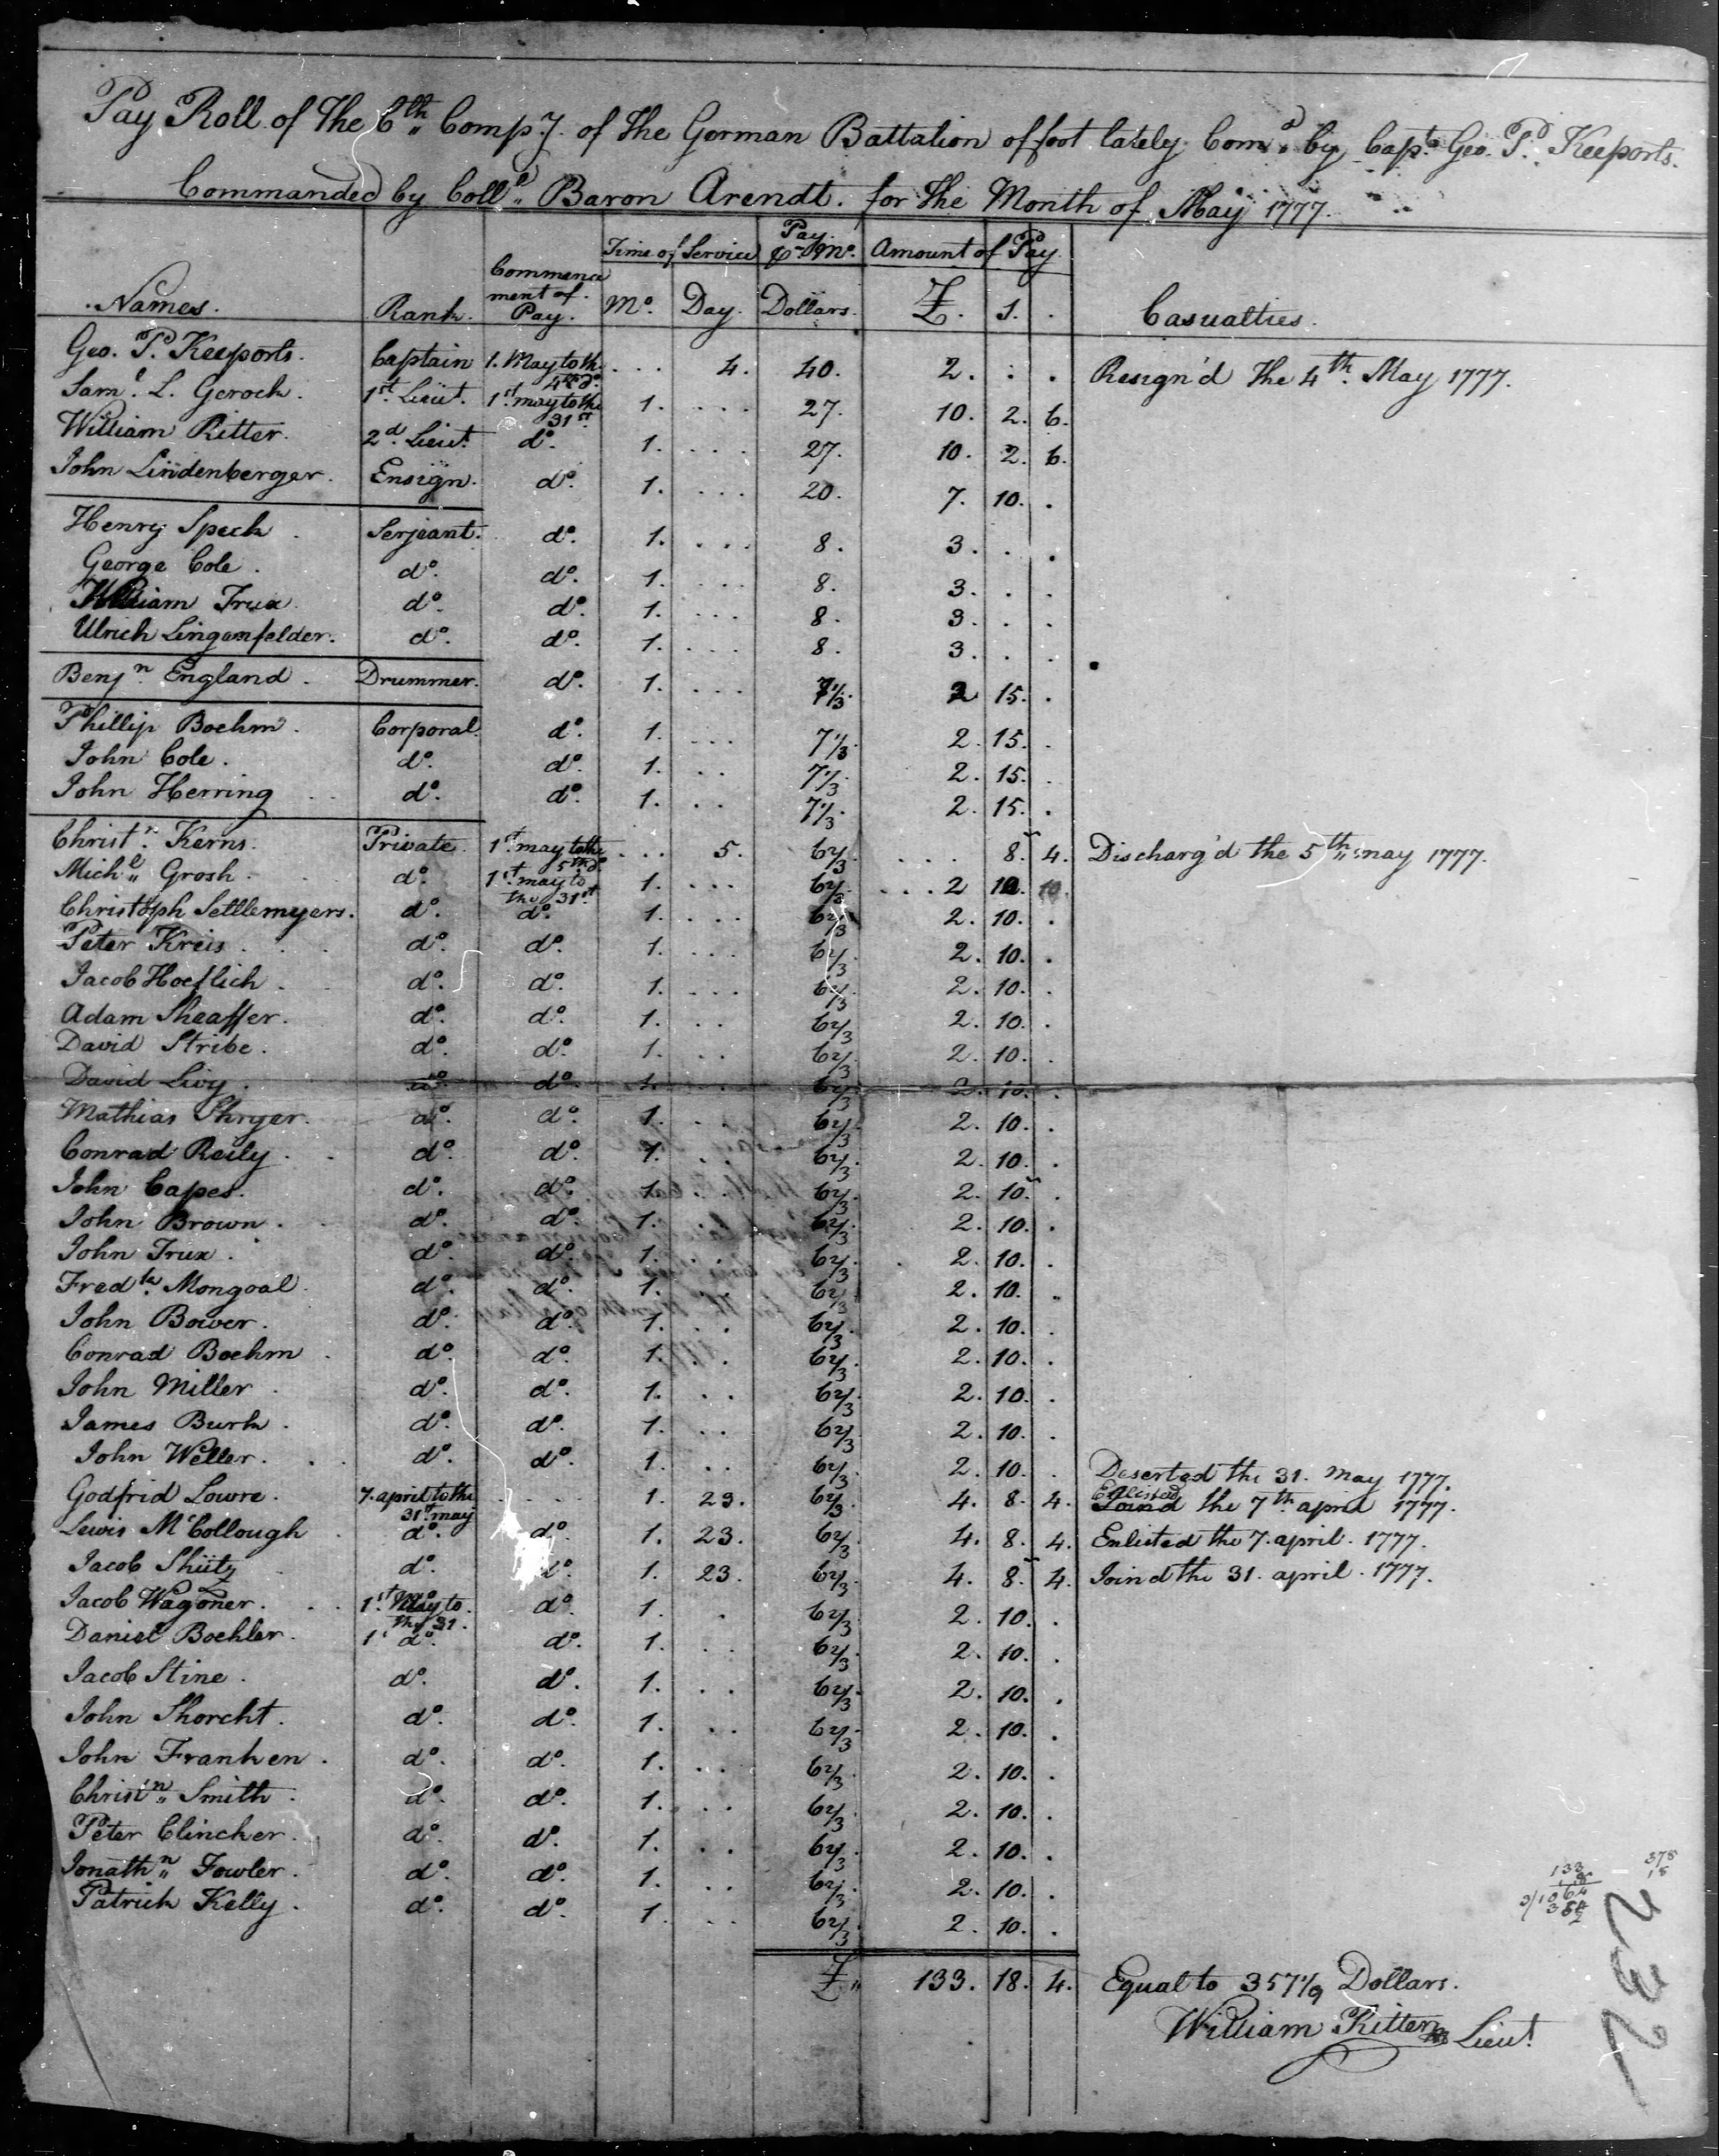 Pay Roll of the 6th Compy. of the German Battalion of foot lately Comd. by Capt. Geo. Pd. Keeports.
Commanded by Colld. Baron Arendt. for the Month of May 1777.
Names. Rank. Commencement of Pay. Time of Service Mo. Day. Pay Mo. Dollars. Amount of Pay £. s. . Casualties.
Geo. P. Keeports. Captain 1. May to th. 4th do. ... 4. 40. 2. . . Resign'd the 4th. May 1777.
Saml. L. Gerock. 1st. Lieut. 1st. may to the 31st. 1. ... 27. 10. 2. 6.
William Ritter. 2d. Lieut. do. 1. ... 27. 10. 2. 6.
John Lindenberger. Ensign. do. 1. ... 20. 7. 10. .
Henry Speck. Serjeant. do. 1. ... 8. 3. . .
George Cole. do. do. 1. ... 8. 3. . .
William Trux. do. do. 1. ... 8. 3. . .
Ulrich Lingenfelder. do. do. 1. ... 8. 3. . .
Benjn. England. Drummer. do. 1. ... 7 1/3. 2 15. .
Phillip Boehm. Corporal. do. 1. ... 7 1/3. 2. 15. .
John Cole. do. do. 1. .. 7 1/3. 2. 15. .
John Herring do. do. 1. .. 7 1/3. 2. 15. .
Christn. Kerns. Private. 1st. may to the 5th do. ... 5. 6 2/3 .... 8. 4. Discharg'd the 5th may 1777.
Michl. Grosh. do. 1st. may to the 31st 1. ... 6 2/3 ... 2 10.
Christoph Settlemyers. do. do. 1. ... 6 2/3 2. 10. .
Peter Kreis. do. do. 1. ... 6 2/3 2. 10. .
Jacob Hoeflich. do. do. 1. ... 6 2/3 2. 10. .
Adam Sheaffer. do. do. 1. .. 6 2/3 2. 10. .
David Stribe. do. do. 1. .. 6 2/3 2. 10. .
David Livy. do. do. 1. .. 6 2/3 2. 10. .
Mathias Shryer. do. do. 1. .. 6 2/3 2. 10. .
Conrad Reily. do. do. 1. .. 6 2/3 2. 10. .
John Capes. do. do. 1. .. 6 2/3 2. 10. .
John Brown. do. do. 1. .. 6 2/3 2. 10. .
John Trux. do. do. 1. .. 6 2/3 2. 10. .
Fredk. Mongoal. do. do. 1. .. 6 2/3 2. 10. .
John Bower. do. do. 1. .. 6 2/3 2. 10. .
Conrad Boehm. do. do. 1. .. 6 2/3 2. 10. .
John Miller. do. do. 1. .. 6 2/3 2. 10. .
James Burk. do. do. 1. .. 6 2/3 2. 10. .
John Weller. do. do. 1. .. 6 2/3 2. 10. . Deserted the 31. may 1777.
Godfrid Lowre. 7. april to the 31st. may .... 1. 23. 6 2/3 4. 8. 4. Enlisted the 7th april 1777.
Lewis McCollough do. do. 1. 23. 6 2/3 4. 8. 4. Enlisted the 7. april. 1777.
Jacob Shütz do. do. 1. 23. 6 2/3 4. 8. 4. Joind the 31. april. 1777.
Jacob Wagoner. 1st. May to the 31. do. 1. . 6 2/3 2. 10. .
Daniel Boehler. 1st do. do. 1. .. 6 2/3 2. 10. .
Jacob Stine. do. do. 1. .. 6 2/3 2. 10. .
John Shorcht. do. do. 1. .. 6 2/3 2. 10. .
John Franken. do. do. 1. .. 6 2/3 2. 10. .
Christn. Smith. do. do. 1. .. 6 2/3 2. 10. .
Peter Clincker. do. do. 1. .. 6 2/3 2. 10. .
Jonathn. Fowler. do. do. 1. .. 6 2/3 2. 10. .
Patrick Kelly. do. do. 1. .. 6 2/3 2. 10. .
£ 133. 18. 4. Equal to 357 1/9 Dollars.
William Ritter Lieut.
378
18
133
8
3/1064
232